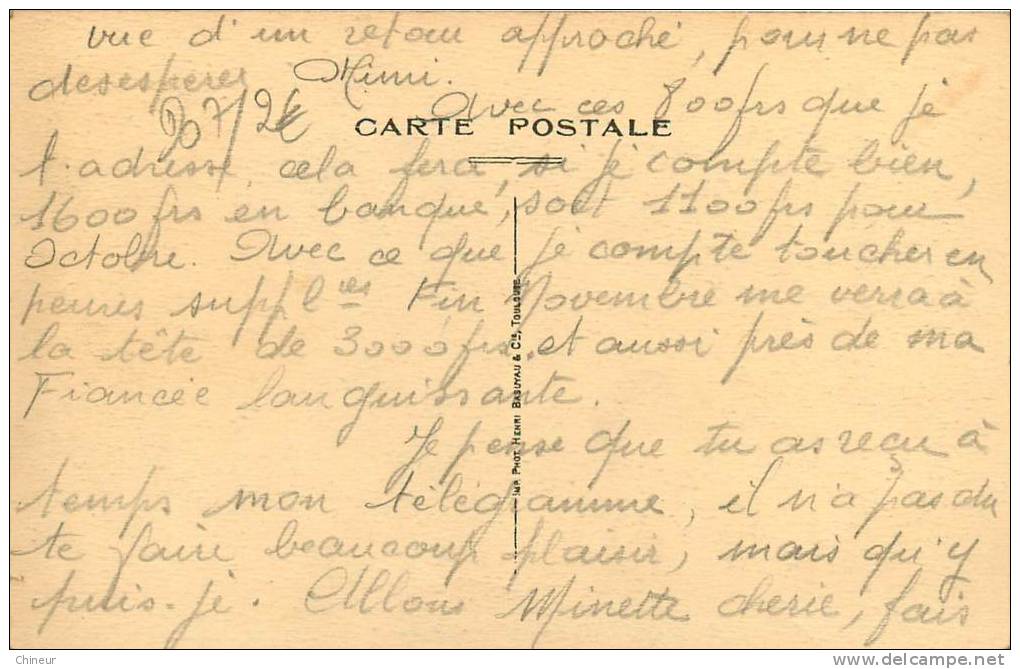 vue d'un retour approché, pour ne pas
desesperer Mimi.
Avec ces 800frs que je
207/2€
CARTE POSTALE
t'adresse, cela fera, si je compte bien,
1600frs en banque, soit 1100frs pour
Octobre. Avec ce que je compte toucher en
heures suppl res Fin Novembre me verra à
la tête de 3000frs et aussi près de ma
Fiancée languissante.
Je pense que tu as reçu à
temps mon télégramme, il n'a pas du
te faire beaucoup plaisir, mais qu'y
puis-je. Allons Minette cherie, fais
IMP. PHOT. HENRI BASUYAU & Cie, TOULOUSE
Chineur
www.delcampe.net